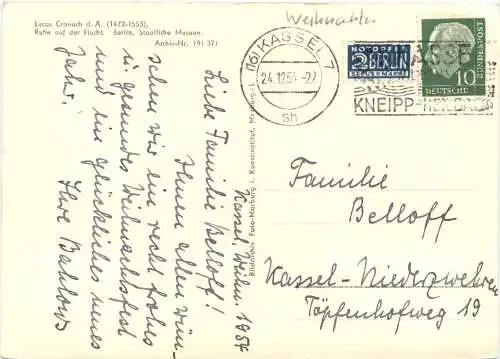 Lucas Cranach d. Ä. (1472-1553),
Ruhe auf der Flucht. Berlin, Staatliche Museen.
Archiv-Nr. 191 371
Weihnachten
(16) KASSEL 7
24.12.54.-22
sh
NOTOPFER
2 BERLIN
STEUERMARKE
KNEIPP-HEILBAD
DEUTSCHE BUNDESPOST
10
Kassel, Weihn. 1954
Liebe Familie Belloff!
Ihnen allen wün-
schen wir ein recht frohes
u. gesundes Weihnachtsfest
und ein glückliches neues
Jahr.
Ihre Bahlows
Bildarchiv Foto-Marburg i. Kunstinstitut, Marburg/L.
Familie
Belloff
Kassel-Niederzwehren
Töpfenhofweg 19